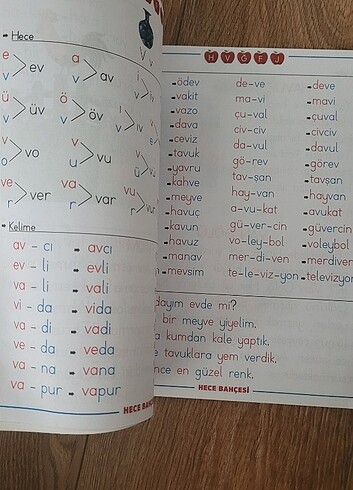 Hece
e v > ev
a v > av
ü v > üv
ö v > öv
v o > vo
v u > vu
ve r > ver
va r > var
vu r > vur
Kelime
av - cı avcı
ev - li evli
va - li vali
vi - da vida
va - di vadi
ve - da veda
va - na vana
va - pur vapur
HECE BAHÇESİ
H V Ğ F J
ödev de-ve deve
vakit ma-vi mavi
vazo çu-val çuval
dava civ-civ civciv
ceviz da-vul davul
tavuk gö-rev görev
yavru tav-şan tavşan
kahve hay-van hayvan
meyve a-vu-kat avukat
havuç gü-ver-cin güvercin
kavun vo-ley-bol voleybol
havuz mer-di-ven merdiven
manav te-le-viz-yon televizyon
mevsim
dayım evde mi?
bir meyve yiyelim.
kumdan kale yaptık.
tavuklara yem verdik.
en güzel renk.
HECE BAHÇESİ